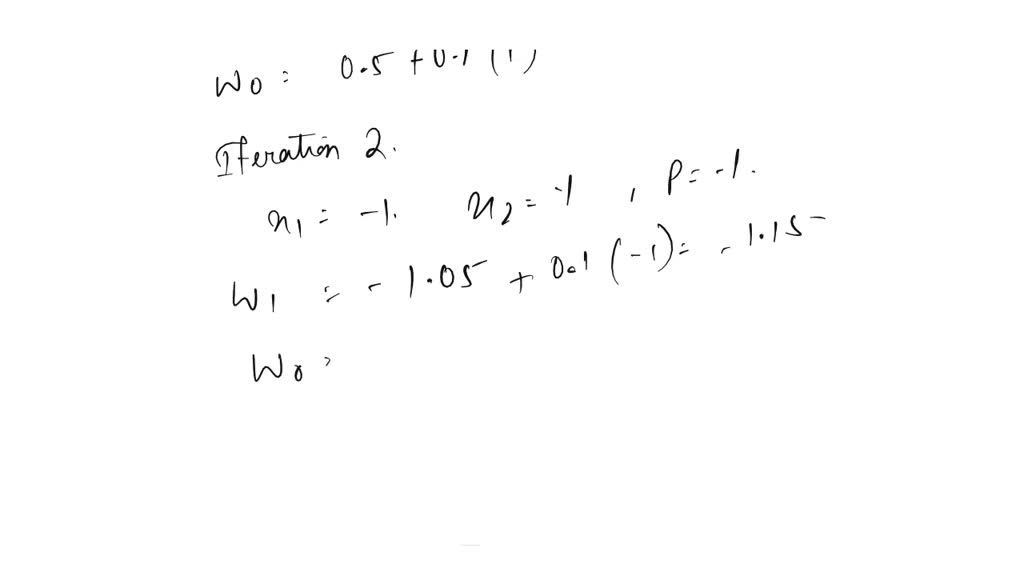 W0 = 0.5 + 0.1 (1)
Iteration 2.
x1 = -1. x2 = -1 , P = -1.
W1 = - 1.05 + 0.1 (-1) = - 1.15
W0 =